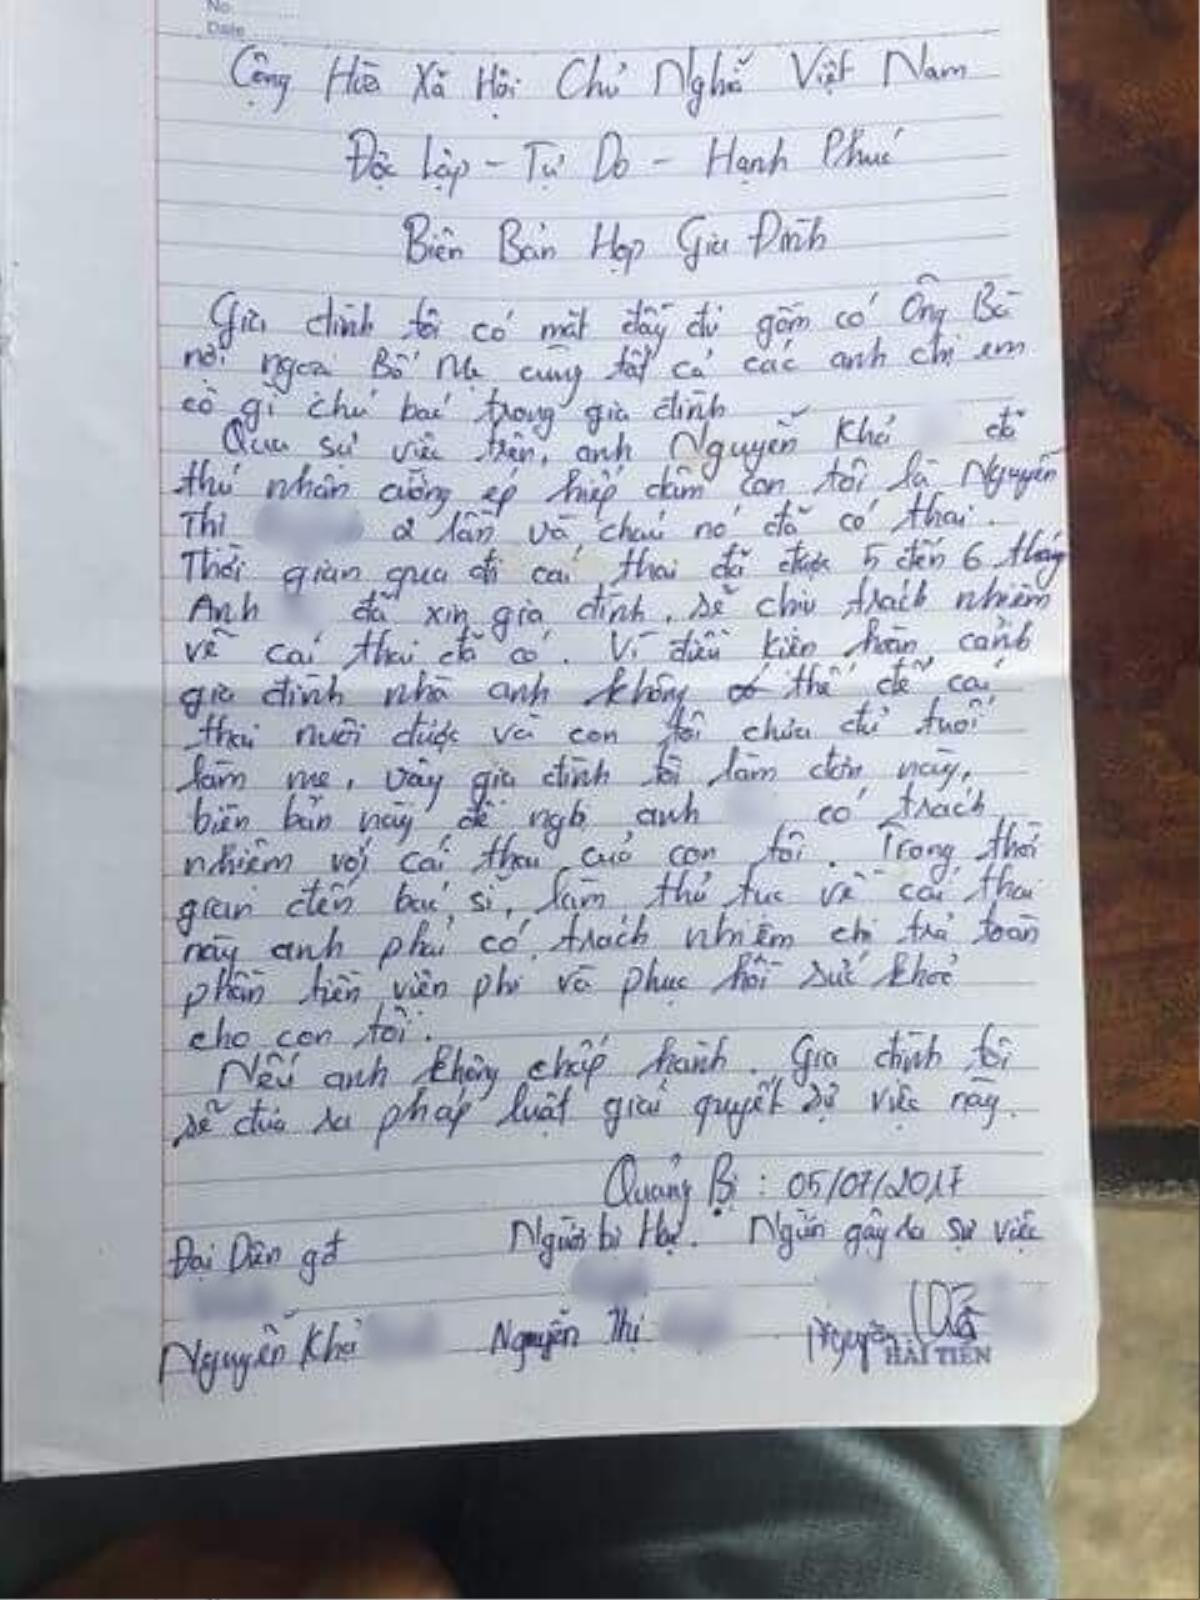 No
Date
Cộng Hòa Xã Hội Chủ Nghĩa Việt Nam
Độc Lập - Tự Do - Hạnh Phúc
Biên Bản Họp Gia Đình
Gia đình tôi có mặt đầy đủ gồm có Ông Bà
nội ngoại Bố Mẹ cùng tất cả các anh chị em
cô gì chú bác trong gia đình
Qua sự việc trên, anh Nguyễn Khả đã
thú nhận cưỡng ép hiếp dâm con tôi là Nguyễn
Thị 2 lần và cháu nó đã có thai.
Thời gian qua đi cái thai đã được 5 đến 6 tháng
Anh đã xin gia đình, sẽ chịu trách nhiệm
về cái thai đã có. Vì điều kiện hoàn cảnh
gia đình nhà anh không có thể để cái
thai nuôi được và con tôi chưa đủ tuổi
làm mẹ, vậy gia đình tôi làm đơn này,
biên bản này đề nghị anh có trách
nhiệm với cái thai của con tôi. Trong thời
gian đến bác sĩ, làm thủ tục về cái thai
này anh phải có trách nhiệm chi trả toàn
phần tiền viện phí và phục hồi sức khoẻ
cho con tôi.
Nếu anh không chấp hành. Gia đình tôi
sẽ đưa ra pháp luật giải quyết sự việc này.
Quảng Bị : 05/07/2017
Đại Diện gđ Người bị Hại. Người gây ra sự việc
Nguyễn Khả Nguyễn Thị Nguyễn
HẢI TIẾN